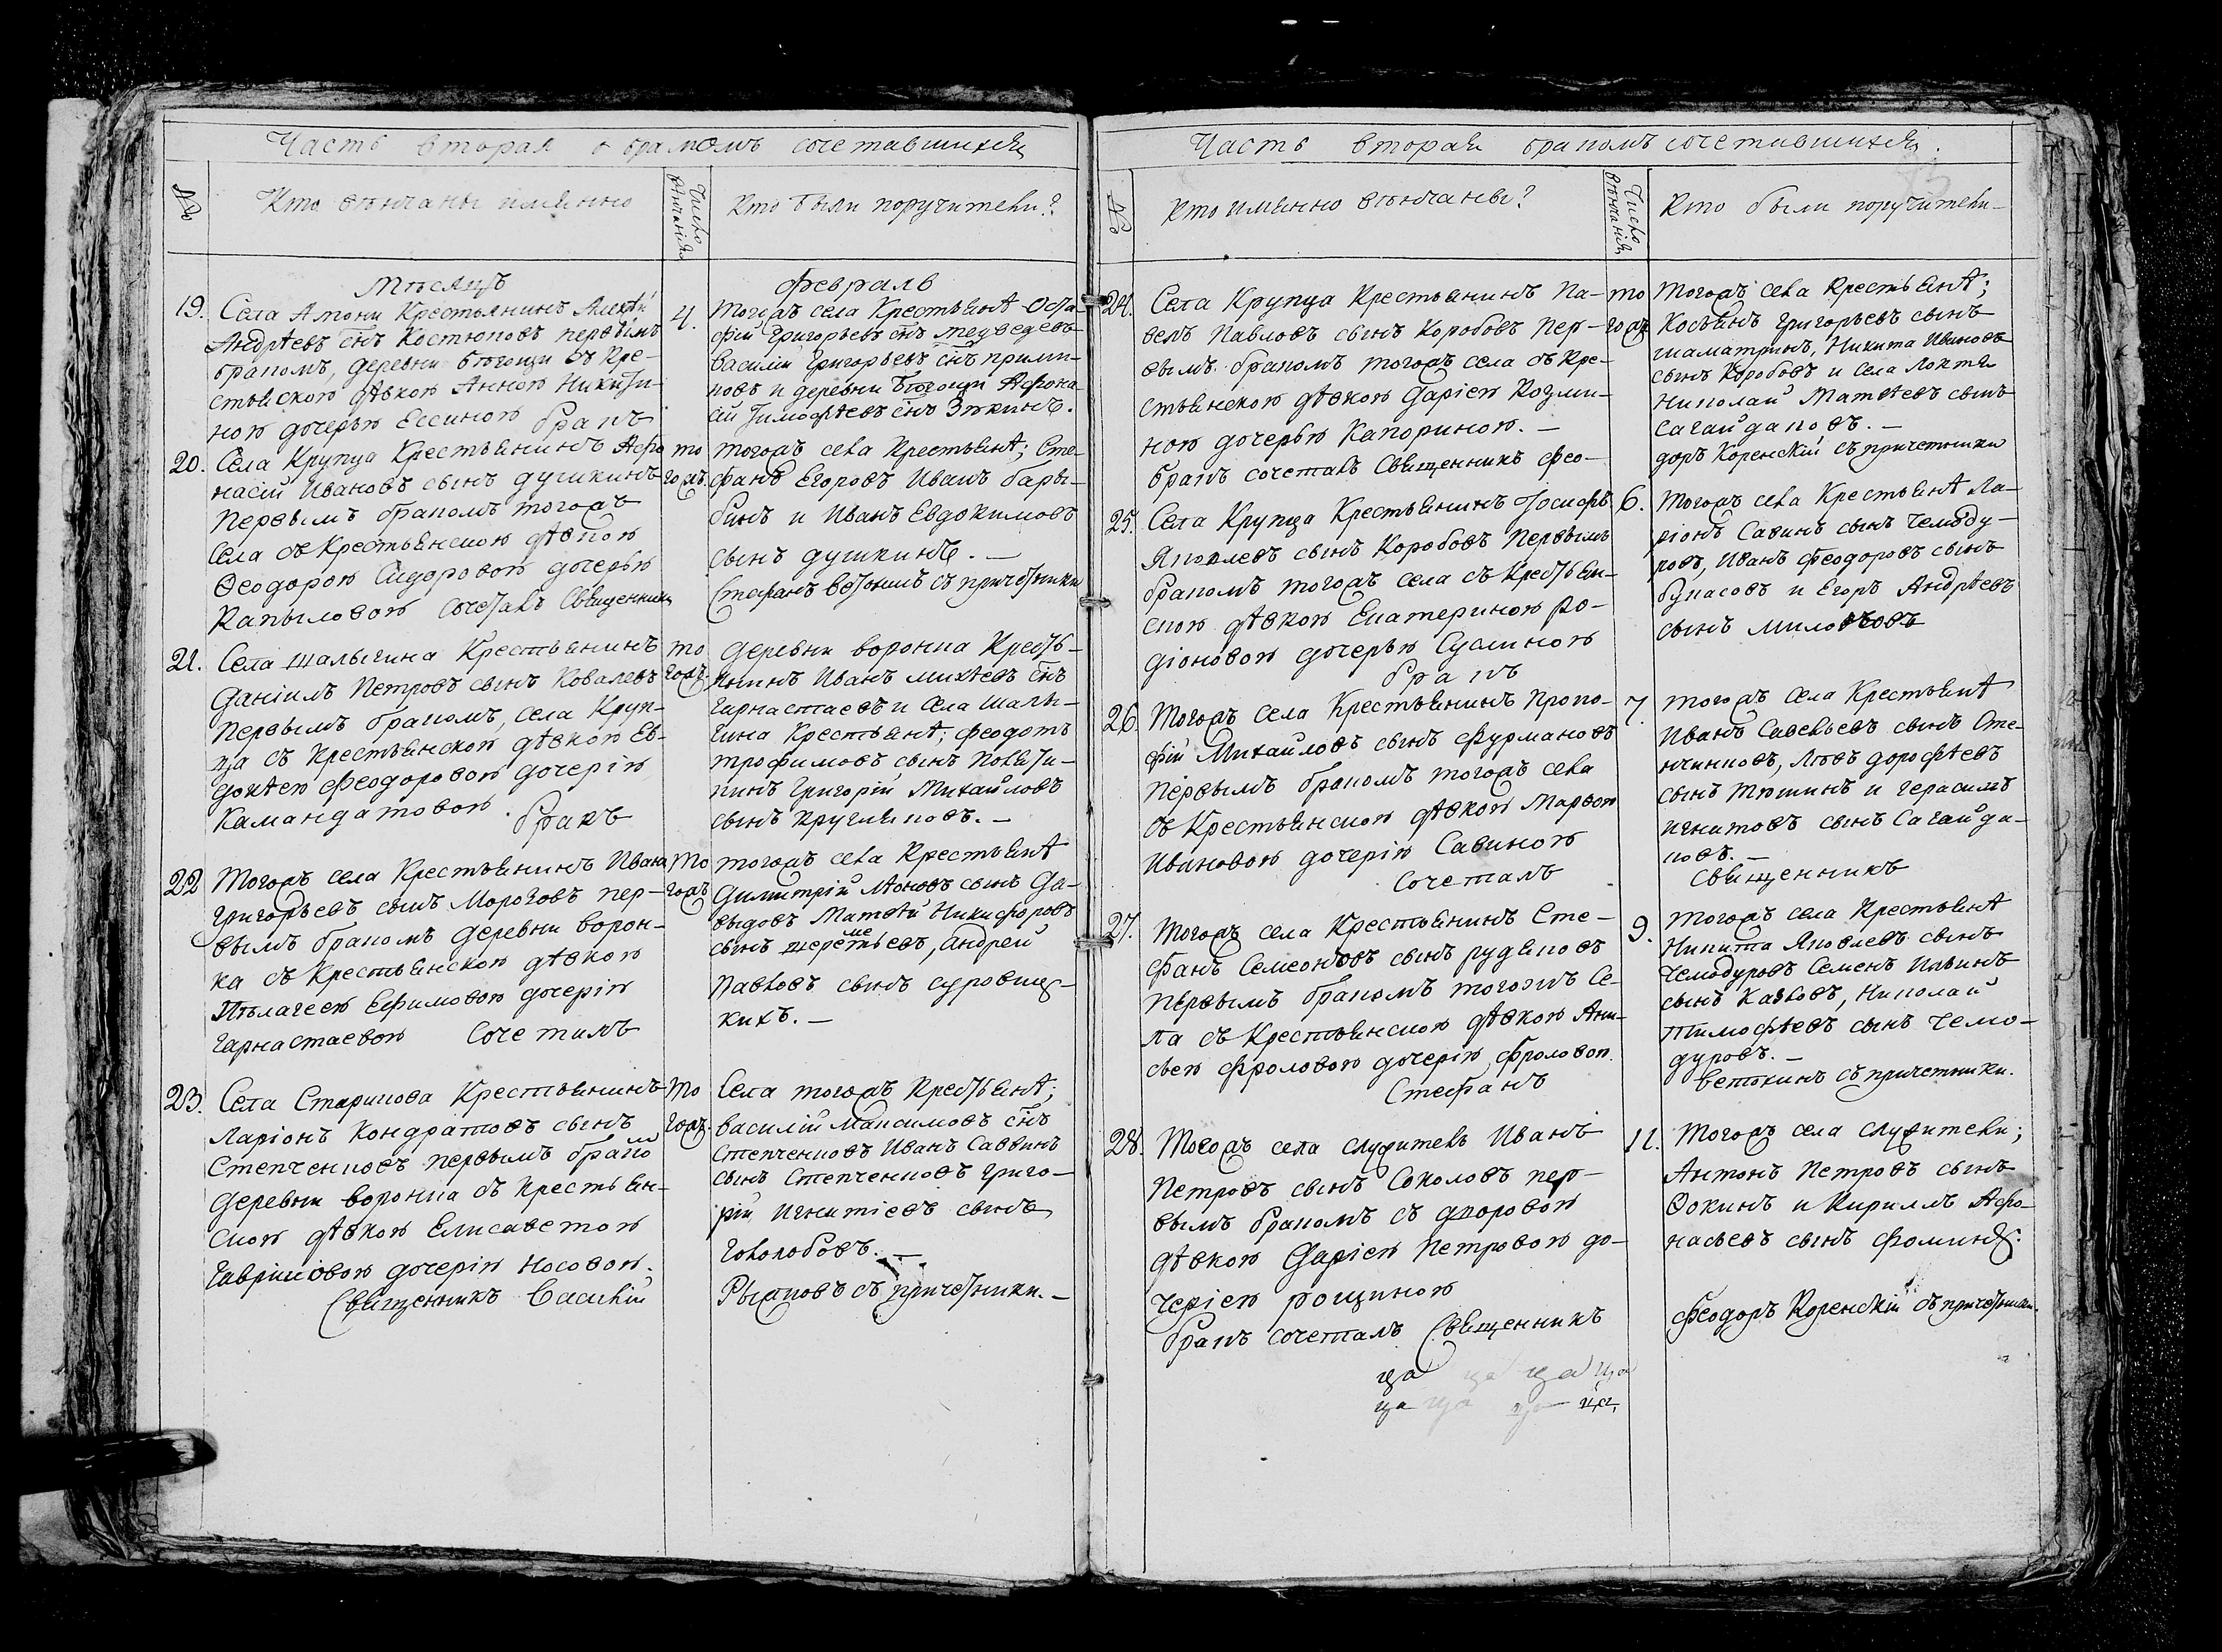 Часть вторая о бракомъ сочетавшихся
№
Кто венчаны именно
Число венчанія
Кто были поручители?
Месяцъ
февраль
19. Села Амони Крестьянинъ Алексѣй
Андрѣевъ снъ Костюковъ первымъ
бракомъ, деревни съ Кре-
стьянскою дѣвкою Анною Никити-
ною дочерью Ессиною бракъ
4.
тогожъ села Крестьянѣ Оста
фій Григорьевъ снъ медведевъ
Василій Григорьевъ снъ прили-
повъ и деревни Афона-
сій Тимофѣевъ снъ Зѣкинъ.
20. Села Крупца Крестьянинъ Афо
насій Ивановъ сынъ душкинъ
Первымъ бракомъ тогожъ
Села съ Крестьянскою дѣвкою
Ѳеодорою Сидоровою дочерью
Капыловою сочеталъ Священникъ
то
гожъ.
тогожъ села Крестьянѣ; Сте-
фанъ Егоровъ Иванъ бары-
бинъ и Иванъ Евдокимовъ
сынъ душкинъ. —
Стефанъ Ветокинъ съ причетники
21. Села шалыгина Крестьянинъ
Даніилъ Петровъ сынъ Ковалевъ
Первымъ бракомъ, села Круп-
ца съ Крестьянскою дѣвкою Ев-
докѣею Феодоровою дочерію
Камандатовою. бракъ
то
гожъ.
деревни воронка Кресть-
янинъ Иванъ михѣевъ снъ
Гарнастаевъ и Села Шалы-
гина Крестьянѣ; Феодотъ
трофимовъ сынъ
Григорій Михайловъ
сынъ кругляковъ. —
22 Тогожъ села Крестьянинъ Ивана
Григорьевъ сынъ Мороговъ пер-
вымъ бракомъ деревни ворон-
ка съ Крестьянскою дѣвкою
Пѣлагеею Ефимовою дочерію
Гарнастаевою Сочеталъ
То
гожъ
тогожъ села Крестьянѣ
Димитрій Леоновъ сынъ Да-
выдовъ Матвѣй Никифоровъ
сынъ шереметьевъ, Андрей
Павловъ сынъ суровиц-
кихъ. —
23. Села Старикова Крестьянинъ
Ларіонъ Кондратовъ сынъ
Степченковъ первымъ брако
деревни воронка съ крестьян-
скою дѣвкою Елисаветою
Гавриловою дочерію Носовою.
Священникъ Василій
То
гожъ.
Села тогожъ Крестьянѣ;
василій Максимовъ снъ
Степченковъ Иванъ Саввинъ
сынъ Степченковъ Григо-
рій Игнатіевъ сынъ
Гололобовъ. —
Рыжковъ съ причетники. —
Часть вторая бракомъ сочетавшихся.
№
Кто именно венчаны?
Число венчанія
Кто были поручители —
24. Села Крупца Крестьянинъ Па-
велъ Павловъ сынъ Коробовъ пер-
вымъ бракомъ тогожъ села съ Кре-
стьянскою дѣвкою Даріею Козми-
ною дочерью Капориною. —
бракъ сочеталъ Священникъ Фео-
то
гожъ
Тогожъ села Крестьянѣ;
Косьянъ Григорьевъ сынъ
шаматринъ, Никита Ивановъ
сынъ Коробовъ и Села Локтя
Николай Матвѣевъ сынъ
сагайдаковъ. —
доръ Коренскій съ причетники
25. Села Крупца Крестьянинъ Іосифъ
Яковлевъ сынъ Коробовъ Первымъ
бракомъ тогожъ села съ Крестьян-
скою дѣвкою Екатериною Ро-
діоновою дочерью Суслиною
бракъ
6.
Тогожъ села Крестьянѣ Ла-
ріонъ Савинъ сынъ Чемоду-
ровъ, Иванъ Феодоровъ сынъ
букасовъ и Егоръ Андрѣевъ
сынъ миловъ
26. Тогожъ Села Крестьянинъ Проко-
фій Михайловъ сынъ Фурмановъ
Первымъ бракомъ тогожъ села
съ Крестьянскою дѣвкою Марвою
Ивановою дочерію Савиною
Сочеталъ
7.
тогожъ Села Крестьянѣ
Иванъ Савельевъ сынъ Сте-
нчинковъ, Левъ дорофѣевъ
сынъ тюшинъ и Герасимъ
игнатовъ сынъ Сагайда-
ковъ. —
Священникъ
27. Тогожъ села Крестьянинъ Сте-
фанъ Семеоновъ сынъ рудяковъ
Первымъ бракомъ тогожъ Се-
ла съ Крестьянскою дѣвкою Ани-
сьею Фроловою дочерію Фроловою.
Стефанъ
9.
Тогожъ села Крестьянѣ
Никита Яковлевъ сынъ
Чемодуровъ Семенъ Ильинъ
сынъ Казловъ, Николай
тимофѣевъ сынъ Чемо-
дуровъ. —
Ветокинъ съ причетники.
28. Тогожъ села служитель Иванъ
Петровъ сынъ Соколовъ пер-
вымъ бракомъ съ дворовою
дѣвкою Даріею Петровою до-
черіею рощиною
бракъ сочеталъ Священникъ
11.
Тогожъ села служители;
Антонъ Петровъ сынъ
Ѳокинъ и Кириллъ Афо-
насьевъ сынъ Фоминъ.
Феодоръ Коренскій съ причетники.
ца ца ца ца
ца ца ца ца